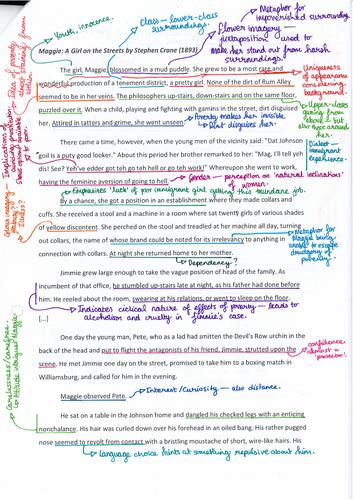 Youth, innocence.
Class - lower-class surroundings.
Metaphor for impoverished surroundings
Flower imagery - juxtaposition used to make her stand out from harsh surroundings.
Maggie: A Girl on the Streets by Stephen Crane (1893)
The girl, Maggie, blossomed in a mud puddle. She grew to be a most rare and
wonderful production of a tenement district, a pretty girl. None of the dirt of Rum Alley
seemed to be in her veins. The philosophers up-stairs, down-stairs and on the same floor,
puzzled over it. When a child, playing and fighting with gamins in the street, dirt disguised
her. Attired in tatters and grime, she went unseen.
Uniqueness of appearance considering background.
Upper-class gazing from above - but also once around her.
Poverty makes her invisible
Dirt disguises her.
There came a time, however, when the young men of the vicinity said: "Dat Johnson
goil is a puty good looker." About this period her brother remarked to her: "Mag, I'll tell yeh
dis! See? Yeh've edder got teh go teh hell or go teh work!" Whereupon she went to work,
having the feminine aversion of going to hell.
Dialect - immigrant experience.
Gender - perception on 'natural inclinations' of women.
Emphasises 'luck' of poor immigrant girl getting this mundane job.
By a chance, she got a position in an establishment where they made collars and
cuffs. She received a stool and a machine in a room where sat twenty girls of various shades
of yellow discontent. She perched on the stool and treadled at her machine all day, turning
out collars, the name of whose brand could be noted for its irrelevancy to anything in
connection with collars. At night she returned home to her mother.
Dependency?
Metaphor for Maggie being unable to escape drudgery of poverty.
Jimmie grew large enough to take the vague position of head of the family. As
incumbent of that office, he stumbled up-stairs late at night, as his father had done before
him. He reeled about the room, swearing at his relations, or went to sleep on the floor.
[...]
Indicates cyclical nature of effects of poverty - leads to
alcoholism and cruelty in Jimmie's case.
One day the young man, Pete, who as a lad had smitten the Devil's Row urchin in the
back of the head and put to flight the antagonists of his friend, Jimmie, strutted upon the
scene. He met Jimmie one day on the street, promised to take him to a boxing match in
Williamsburg, and called for him in the evening.
confidence. almost a 'protector'.
Maggie observed Pete.
Interest/Curiosity - also distance.
He sat on a table in the Johnson home and dangled his checked legs with an enticing
nonchalance. His hair was curled down over his forehead in an oiled bang. His rather pugged
nose seemed to revolt from contact with a bristling moustache of short, wire-like hairs. His
language choice hints at something repulsive about him.
Carelessness/carefree.
Attitude intrigues Maggie